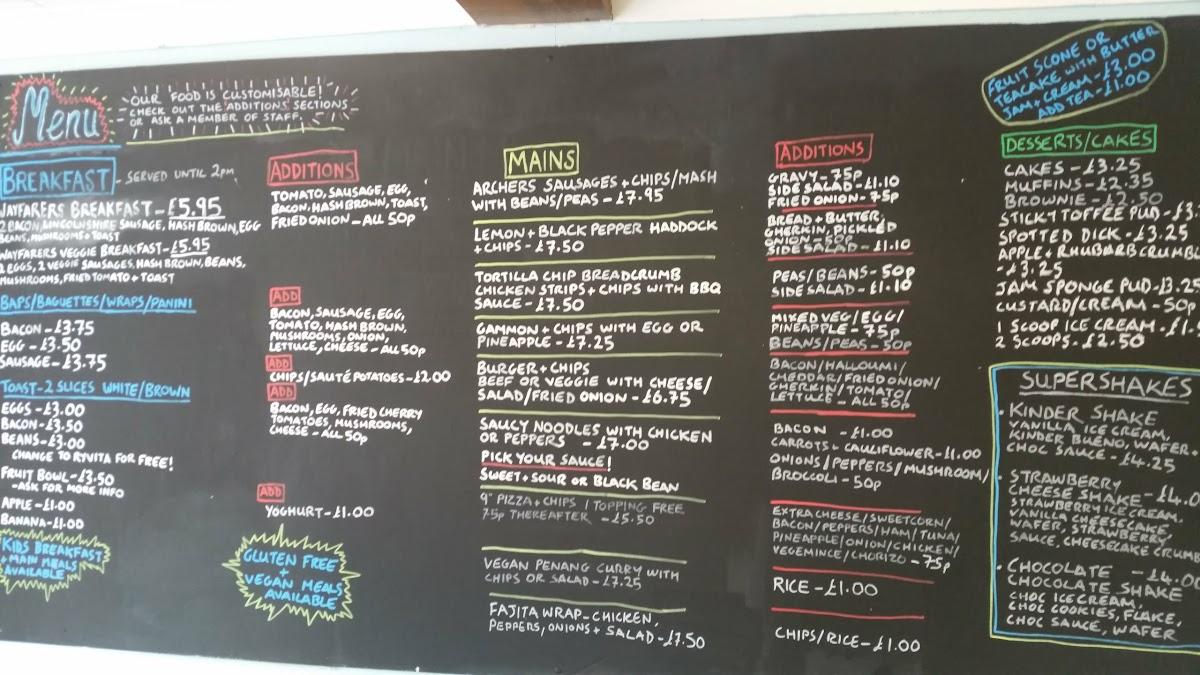 Menu
OUR FOOD IS CUSTOMISABLE!
CHECK OUT THE ADDITIONS SECTIONS
OR ASK A MEMBER OF STAFF.
BREAKFAST - SERVED UNTIL 2PM
WAYFARERS BREAKFAST - £5.95
2 BACON, LINCOLNSHIRE SAUSAGE, HASH BROWN, EGG
BEANS, MUSHROOMS + TOAST
WAYFARERS VEGGIE BREAKFAST - £5.95
2 EGGS, 2 VEGGIE SAUSAGES, HASH BROWN, BEANS,
MUSHROOMS, FRIED TOMATO + TOAST
BAPS/BAGUETTES/WRAPS/PANINI
BACON - £3.75
EGG - £3.50
SAUSAGE - £3.75
TOAST - 2 SLICES WHITE/BROWN
EGGS - £3.00
BACON - £3.50
BEANS - £3.00
CHANGE TO RYVITA FOR FREE!
FRUIT BOWL - £3.50
- ASK FOR MORE INFO
APPLE - £1.00
BANANA - £1.00
KIDS BREAKFAST
+ MAIN MEALS
AVAILABLE
ADDITIONS
TOMATO, SAUSAGE, EGG,
BACON, HASH BROWN, TOAST,
FRIED ONION - ALL 50p
ADD
BACON, SAUSAGE, EGG,
TOMATO, HASH BROWN,
MUSHROOMS, ONION,
LETTUCE, CHEESE - ALL 50p
ADD
CHIPS/SAUTÉ POTATOES - £2.00
ADD
BACON, EGG, FRIED CHERRY
TOMATOES, MUSHROOMS,
CHEESE - ALL 50p
ADD
YOGHURT - £1.00
GLUTEN FREE
+
VEGAN MEALS
AVAILABLE
MAINS
ARCHERS SAUSAGES + CHIPS/MASH
WITH BEANS/PEAS - £7.95
LEMON + BLACK PEPPER HADDOCK
+ CHIPS - £7.50
TORTILLA CHIP BREADCRUMB
CHICKEN STRIPS + CHIPS WITH BBQ
SAUCE - £7.50
GAMMON + CHIPS WITH EGG OR
PINEAPPLE - £7.25
BURGER + CHIPS
BEEF OR VEGGIE WITH CHEESE/
SALAD/FRIED ONION - £6.75
SAUCY NOODLES WITH CHICKEN
OR PEPPERS - £7.00
PICK YOUR SAUCE!
SWEET + SOUR OR BLACK BEAN
9" PIZZA + CHIPS / TOPPING FREE
75p THEREAFTER - £5.50
VEGAN PENANG CURRY WITH
CHIPS OR SALAD - £7.25
FAJITA WRAP - CHICKEN,
PEPPERS, ONIONS + SALAD - £7.50
ADDITIONS
GRAVY - 75p
SIDE SALAD - £1.10
FRIED ONION - 75p
BREAD + BUTTER,
GHERKIN, PICKLED
ONION - 50p
SIDE SALAD - £1.10
PEAS/BEANS - 50p
SIDE SALAD - £1.10
MIXED VEG/EGG/
PINEAPPLE - 75p
BEANS/PEAS - 50p
BACON/HALLOUMI/
CHEDDAR/FRIED ONION/
GHERKIN/TOMATO/
LETTUCE - ALL 50p
BACON - £1.00
CARROTS + CAULIFLOWER - £1.00
ONIONS/PEPPERS/MUSHROOM/
BROCCOLI - 50p
EXTRA CHEESE/SWEETCORN/
BACON/PEPPERS/HAM/TUNA/
PINEAPPLE/ONION/CHICKEN/
VEGEMINCE/CHORIZO - 75p
RICE - £1.00
CHIPS/RICE - £1.00
FRUIT SCONE OR
TEACAKE WITH BUTTER
JAM + CREAM - £3.00
ADD TEA - £1.00
DESSERTS/CAKES
CAKES - £3.25
MUFFINS - £2.35
BROWNIE - £2.50
STICKY TOFFEE PUD - £3
SPOTTED DICK - £3.25
APPLE + RHUBARB CRUMBL
- £3.25
JAM SPONGE PUD - £3.2
CUSTARD/CREAM - 50p
1 SCOOP ICE CREAM - £1
2 SCOOPS - £2.50
SUPERSHAKES
• KINDER SHAKE
VANILLA ICE CREAM,
KINDER BUENO, WAFER +
CHOC SAUCE - £4.25
• STRAWBERRY
CHEESE SHAKE - £4.0
STRAWBERRY ICE CREAM,
VANILLA CHEESECAKE
WAFER, STRAWBERRY
SAUCE, CHEESECAKE CRUMB
• CHOCOLATE - £4.00
CHOCOLATE SHAKE
CHOC ICE CREAM,
CHOC COOKIES, FLAKE,
CHOC SAUCE, WAFER